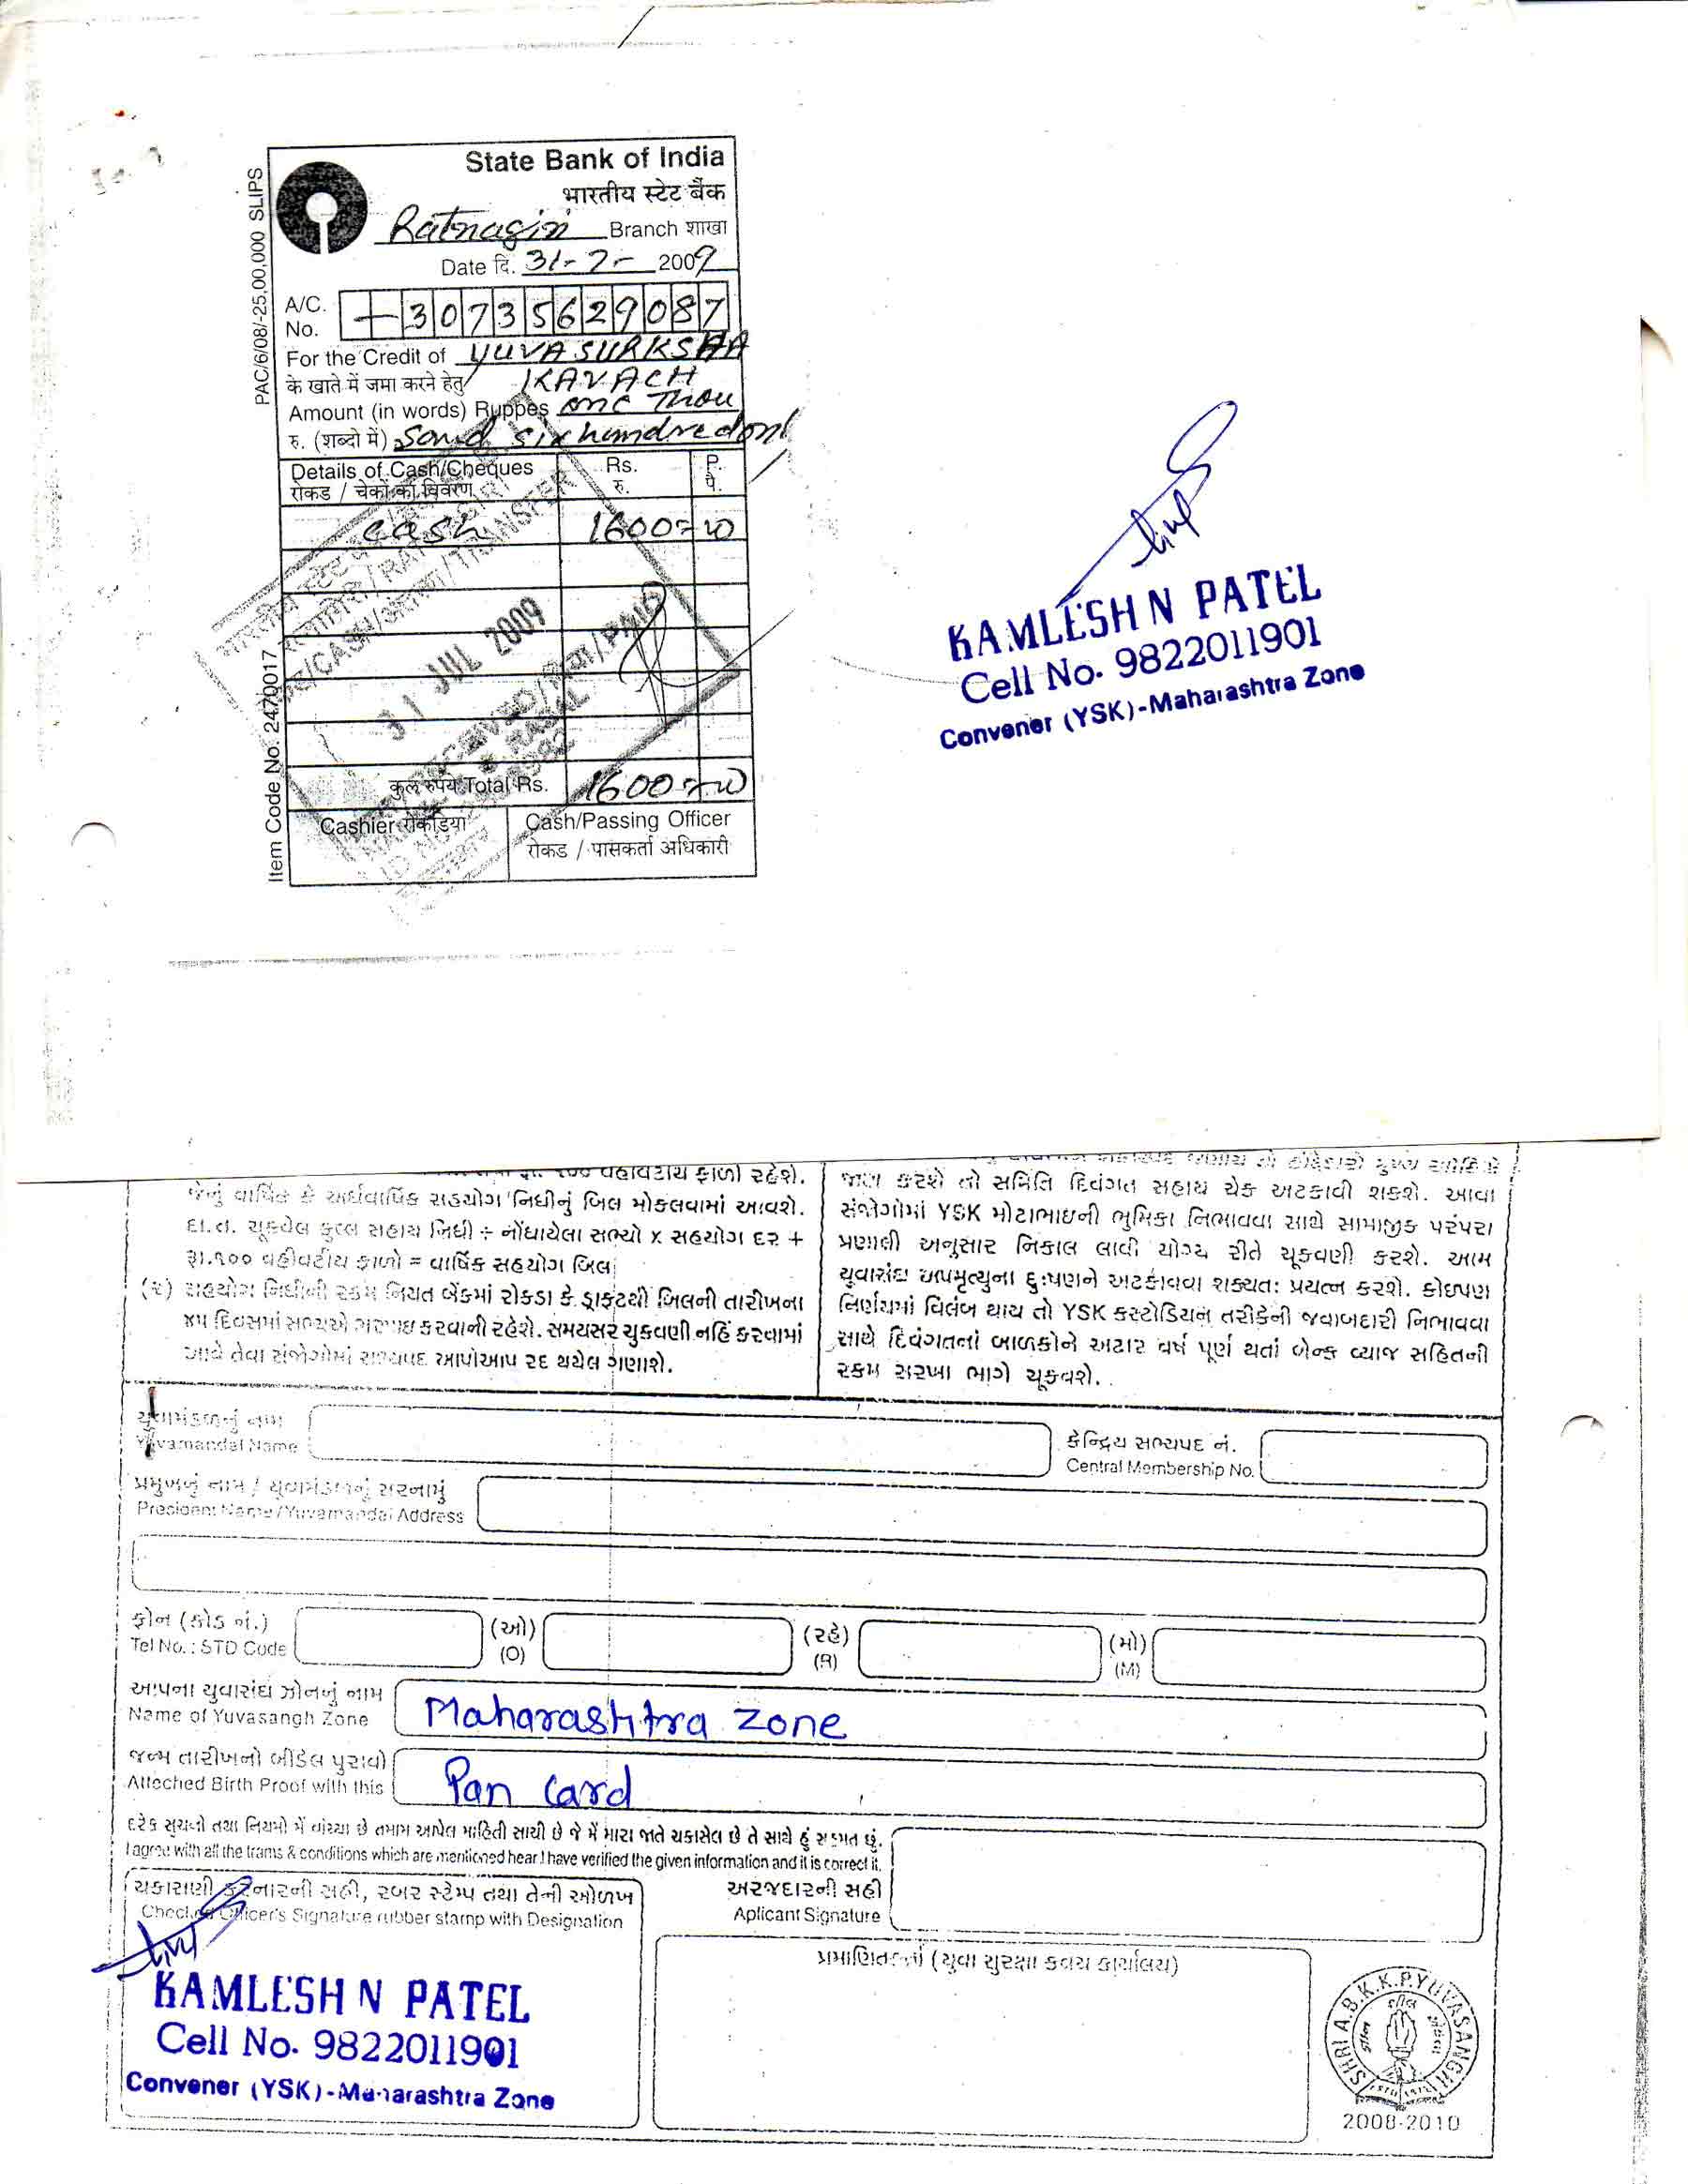 State Bank of India
भारतीय स्टेट बैंक
Ratnagiri Branch शाखा
Date दि. 31-7- 2009
PAC/6/08/-25,00,000 SLIPS
A/C. No. 30735629087
For the Credit of YUVA SURKSHA
के खाते में जमा करने हेतु KAVACH
Amount (in words) Ruppes one Thou
रु. (शब्दो में) Sand six hundred only
Details of Cash/Cheques Rs. P.
रोकड / चेकों का विवरण रु. पै.
cash 1600=00
31 JUL 2009
Item Code No: 2470017
कुल रुपये Total Rs. 1600=00
Cashier रोकडिया Cash/Passing Officer
रोकड / पासकर्ता अधिकारी
KAMLESH N PATEL
Cell No. 9822011901
Convener (YSK)-Maharashtra Zone
વહીવટીય ફાળો રહેશે.
જેનું વાર્ષિક કે અર્ધવાર્ષિક સહયોગ નિધીનું બિલ મોકલવામાં આવશે.
દા.ત. ચૂકવેલ કુલ સહાય નિધી ÷ નોંધાયેલા સભ્યો x સહયોગ દર +
રૂા.૧૦૦ વહીવટીય ફાળો = વાર્ષિક સહયોગ બિલ
(૨) સહયોગ નિધીની રકમ નિયત બેંકમાં રોકડા કે ડ્રાફ્ટથી બિલની તારીખના
૪૫ દિવસમાં સભ્યએ ભરપાઇ કરવાની રહેશે. સમયસર ચુકવણી નહિં કરવામાં
આવે તેવા સંજોગોમાં સભ્યપદ આપોઆપ રદ થયેલ ગણાશે.
જાણ કરશે તો સમિતિ દિવંગત સહાય ચેક અટકાવી શકશે. આવા
સંજોગોમાં YSK મોટાભાઇની ભુમિકા નિભાવવા સાથે સામાજીક પરંપરા
પ્રણાલી અનુસાર નિકાલ લાવી યોગ્ય રીતે ચૂકવણી કરશે. આમ
યુવાસંઘ અપમૃત્યુના દુઃષણને અટકાવવા શક્યતઃ પ્રયત્ન કરશે. કોઇપણ
નિર્ણયમાં વિલંબ થાય તો YSK કસ્ટોડિયન તરીકેની જવાબદારી નિભાવવા
સાથે દિવંગતનાં બાળકોને અટાર વર્ષ પૂર્ણ થતાં બેન્ક વ્યાજ સહિતની
રકમ સરખા ભાગે ચૂકવશે.
યુવામંડળનું નામ
Yuvamandal Name
કેન્દ્રિય સભ્યપદ નં.
Central Membership No.
પ્રમુખનું નામ / યુવામંડળનું સરનામું
President Name/Yuvamandal Address
ફોન (કોડ નં.) (ઓ) (રહે) (મો)
Tel No. : STD Code (O) (R) (M)
આપના યુવાસંઘ ઝોનનું નામ
Name of Yuvasangh Zone Maharashtra Zone
જન્મ તારીખનો બીડેલ પુરાવો
Attached Birth Proof with this Pan Card
દરેક સુચનો તથા નિયમો મેં વાંચ્યા છે તમામ આપેલ માહિતી સાચી છે જે મેં મારા જાતે ચકાસેલ છે તે સાથે હું સહમત છું.
I agree with all the trams & conditions which are mentioned hear I have verified the given information and it is correct it.
ચકાસણી કરનારની સહી, રબર સ્ટેમ્પ તથા તેની ઓળખ
Checked Officer's Signature rubber stamp with Designation
અરજદારની સહી
Aplicant Signature
પ્રમાણિતકર્તા (યુવા સુરક્ષા કવચ કાર્યાલય)
KAMLESH N PATEL
Cell No. 9822011901
Convener (YSK)-Maharashtra Zone
SHRI A.B.K.K.P. YUVASANGH
2008-2010